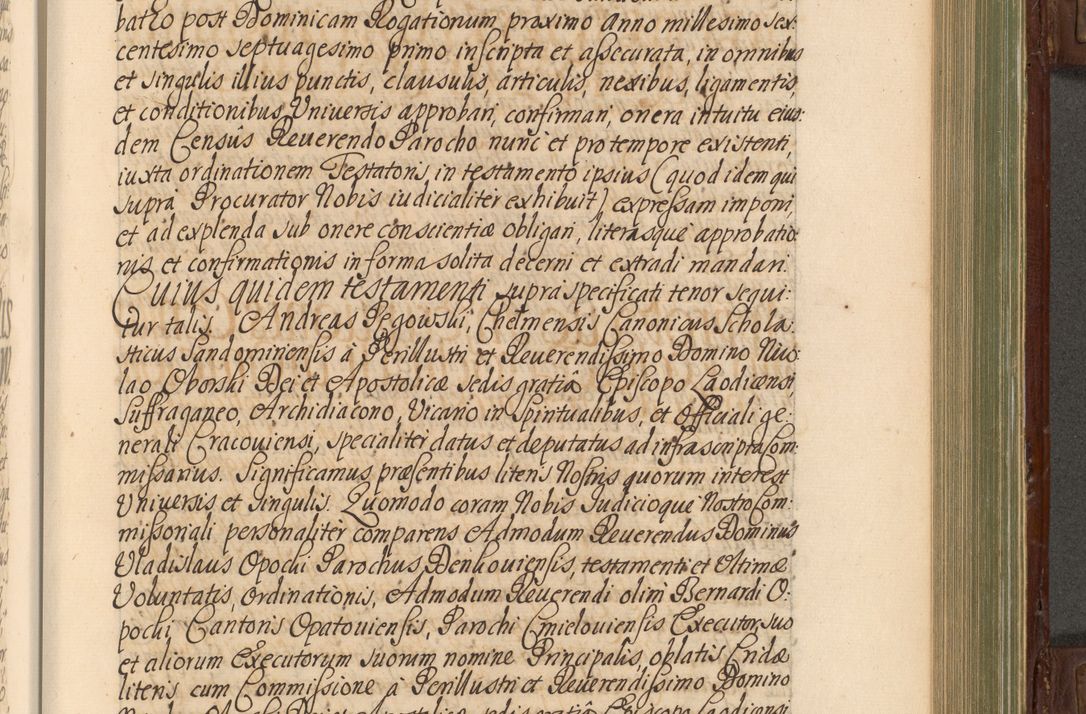 batho post Dominicam Rogationum proximo Anno millesimo sex:
centesimo septuagesimo primo inscripta et assecurata, in omnibus
et singulis illius punctis, clausulis, articulis, nexibus, ligamentis,
et conditionibus Universis approbari, confirmari, onera intuitu eius:
dem Censûs Reuerendo Parocho nunc et pro tempore existenti,
iuxta ordinationem Testatoris, in testamento ipsius (quod idem qui
supra Procurator Nobis iudicialiter exhibuit) expressam imponi,
et ad explenda sub onere conscientiæ obligari, literasque approbatio:
nis et confirmationis in forma solita decerni et extradi mandari.
Cuius quidem testamenti supra specificati tenor sequi:
tur talis. Andreas Pegowski, Chelmensis Canonicus Schola:
sticus Sandomiriensis à Perillustri et Reuerendissimo Domino Nico:
lao Oborski Dei et Apostolicæ sedis gratiâ Episcopo Laodicensi,
Suffraganeo, Archidiacono, Vicario in Spiritualibus, et Officiali ge:
nerali Cracouiensi, specialiter datus et deputatus ad infrascripta Com:
missarius. Significamus præsentibus literis Nostris quorum interest
Universis et singulis. Quomodo coram Nobis Iudicioque Nostro Com:
missoriali personaliter comparens Admodum Reuerendus Dominus
Vladislaus Opocki Parochus Denkouiensis, testamenti et Ultimæ
Voluntatis, Ordinationis, Admodum Reuerendi olim Bernardi O:
pocki, Cantoris Opatouiensis, Parochi Cmielouiensis Executor, suo
et aliorum Executorum suorum nomine Principalis, oblatis Cridæ
literis cum Commissione à Perillustri et Reuerendissimo Domino
Nicolao Oborski Dei et Apostolicæ sedis gratiâ Episcopo Laodicensi